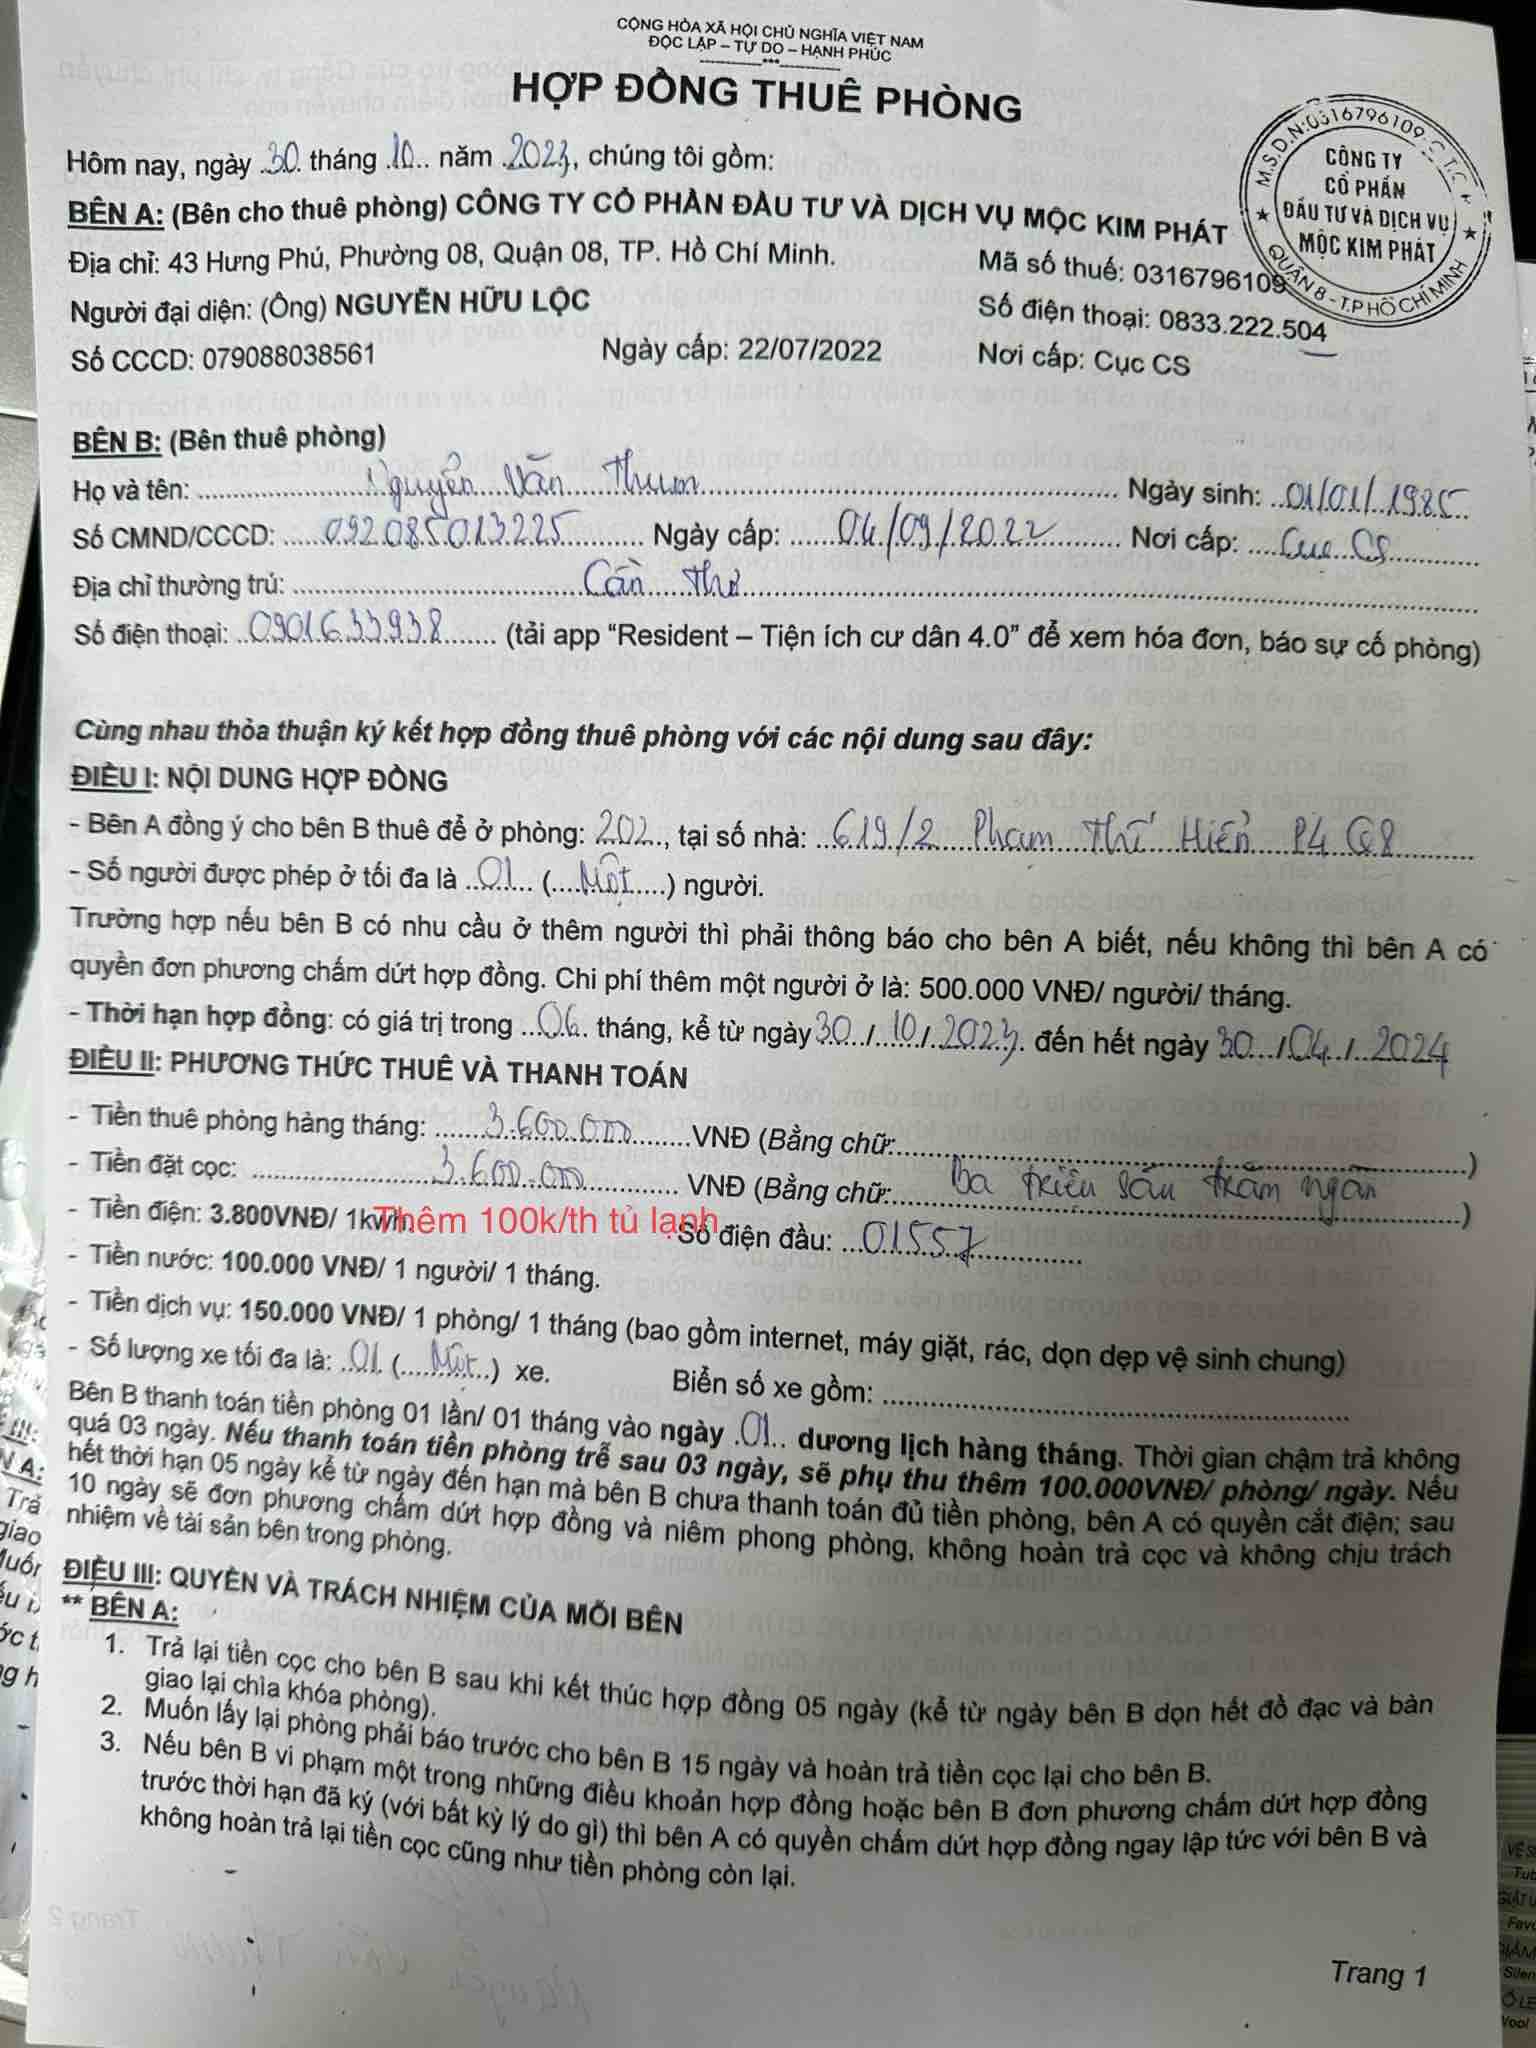 CỘNG HÒA XÃ HỘI CHỦ NGHĨA VIỆT NAM
ĐỘC LẬP – TỰ DO – HẠNH PHÚC
HỢP ĐỒNG THUÊ PHÒNG
M.S.D.N:0316796109-C.T.C.K
CÔNG TY
CỔ PHẦN
ĐẦU TƯ VÀ DỊCH VỤ
MỘC KIM PHÁT
QUẬN 8 - T.P HỒ CHÍ MINH
Hôm nay, ngày 30 tháng 10 năm 2023, chúng tôi gồm:
BÊN A: (Bên cho thuê phòng) CÔNG TY CỔ PHẦN ĐẦU TƯ VÀ DỊCH VỤ MỘC KIM PHÁT
Địa chỉ: 43 Hưng Phú, Phường 08, Quận 08, TP. Hồ Chí Minh. Mã số thuế: 0316796109
Người đại diện: (Ông) NGUYỄN HỮU LỘC Số điện thoại: 0833.222.504
Số CCCD: 079088038561 Ngày cấp: 22/07/2022 Nơi cấp: Cục CS
BÊN B: (Bên thuê phòng)
Họ và tên: Nguyễn Văn Thum Ngày sinh: 01/01/1985
Số CMND/CCCD: 092085013225 Ngày cấp: 04/09/2022 Nơi cấp: Cục CS
Địa chỉ thường trú: Cần Thơ
Số điện thoại: 0901633938 (tải app “Resident – Tiện ích cư dân 4.0” để xem hóa đơn, báo sự cố phòng)
Cùng nhau thỏa thuận ký kết hợp đồng thuê phòng với các nội dung sau đây:
ĐIỀU I: NỘI DUNG HỢP ĐỒNG
- Bên A đồng ý cho bên B thuê để ở phòng: 202, tại số nhà: 619/2 Phạm Thế Hiển P4 Q8
- Số người được phép ở tối đa là 01 (Một) người.
Trường hợp nếu bên B có nhu cầu ở thêm người thì phải thông báo cho bên A biết, nếu không thì bên A có
quyền đơn phương chấm dứt hợp đồng. Chi phí thêm một người ở là: 500.000 VNĐ/ người/ tháng.
- Thời hạn hợp đồng: có giá trị trong 06 tháng, kể từ ngày 30/10/2023 đến hết ngày 30/04/2024
ĐIỀU II: PHƯƠNG THỨC THUÊ VÀ THANH TOÁN
- Tiền thuê phòng hàng tháng: 3.600.000 VNĐ (Bằng chữ: )
- Tiền đặt cọc: 3.600.000 VNĐ (Bằng chữ: Ba triệu sáu trăm ngàn )
- Tiền điện: 3.800VNĐ/ 1kwh. Thêm 100k/th tủ lạnh Số điện đầu: 01557
- Tiền nước: 100.000 VNĐ/ 1 người/ 1 tháng.
- Tiền dịch vụ: 150.000 VNĐ/ 1 phòng/ 1 tháng (bao gồm internet, máy giặt, rác, dọn dẹp vệ sinh chung)
- Số lượng xe tối đa là: 01 (Một) xe. Biển số xe gồm:
Bên B thanh toán tiền phòng 01 lần/ 01 tháng vào ngày 01 dương lịch hàng tháng. Thời gian chậm trả không
quá 03 ngày. Nếu thanh toán tiền phòng trễ sau 03 ngày, sẽ phụ thu thêm 100.000VNĐ/ phòng/ ngày. Nếu
hết thời hạn 05 ngày kể từ ngày đến hạn mà bên B chưa thanh toán đủ tiền phòng, bên A có quyền cắt điện; sau
10 ngày sẽ đơn phương chấm dứt hợp đồng và niêm phong phòng, không hoàn trả cọc và không chịu trách
nhiệm về tài sản bên trong phòng.
ĐIỀU III: QUYỀN VÀ TRÁCH NHIỆM CỦA MỖI BÊN
** BÊN A:
1. Trả lại tiền cọc cho bên B sau khi kết thúc hợp đồng 05 ngày (kể từ ngày bên B dọn hết đồ đạc và bàn
giao lại chìa khóa phòng).
2. Muốn lấy lại phòng phải báo trước cho bên B 15 ngày và hoàn trả tiền cọc lại cho bên B.
3. Nếu bên B vi phạm một trong những điều khoản hợp đồng hoặc bên B đơn phương chấm dứt hợp đồng
trước thời hạn đã ký (với bất kỳ lý do gì) thì bên A có quyền chấm dứt hợp đồng ngay lập tức với bên B và
không hoàn trả lại tiền cọc cũng như tiền phòng còn lại.
Trang 1